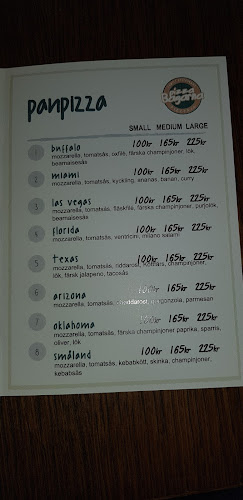 panpizza
pizza
SMALL MEDIUM LARGE
1 buffalo 100kr 165kr 225kr
mozzarella, tomatsås, oxfilé, färska champinjoner, lök,
bearnaisesås
2 miami 100kr 165kr 225kr
mozzarella, tomatsås, kyckling, ananas, banan, curry
3 las vegas 100kr 165kr 225kr
mozzarella, tomatsås, fläskfilé, färska champinjoner, purjolök,
bearnaisesås
4 florida 100kr 165kr 225kr
mozzarella, tomatsås, ventricini, milano salami
5 texas 100kr 165kr 225kr
mozzarella, tomatsås, champinjoner,
lök, färsk jalapeno, tacosås
6 arizona 100kr 165kr 225kr
mozzarella, tomatsås, gorgonzola, parmesan
7 oklahoma 100kr 165kr 225kr
mozzarella, tomatsås, färska champinjoner paprika, sparris,
oliver, lök
8 småland 100kr 165kr 225kr
mozzarella, tomatsås, kebabkött, skinka, champinjoner,
kebabsås